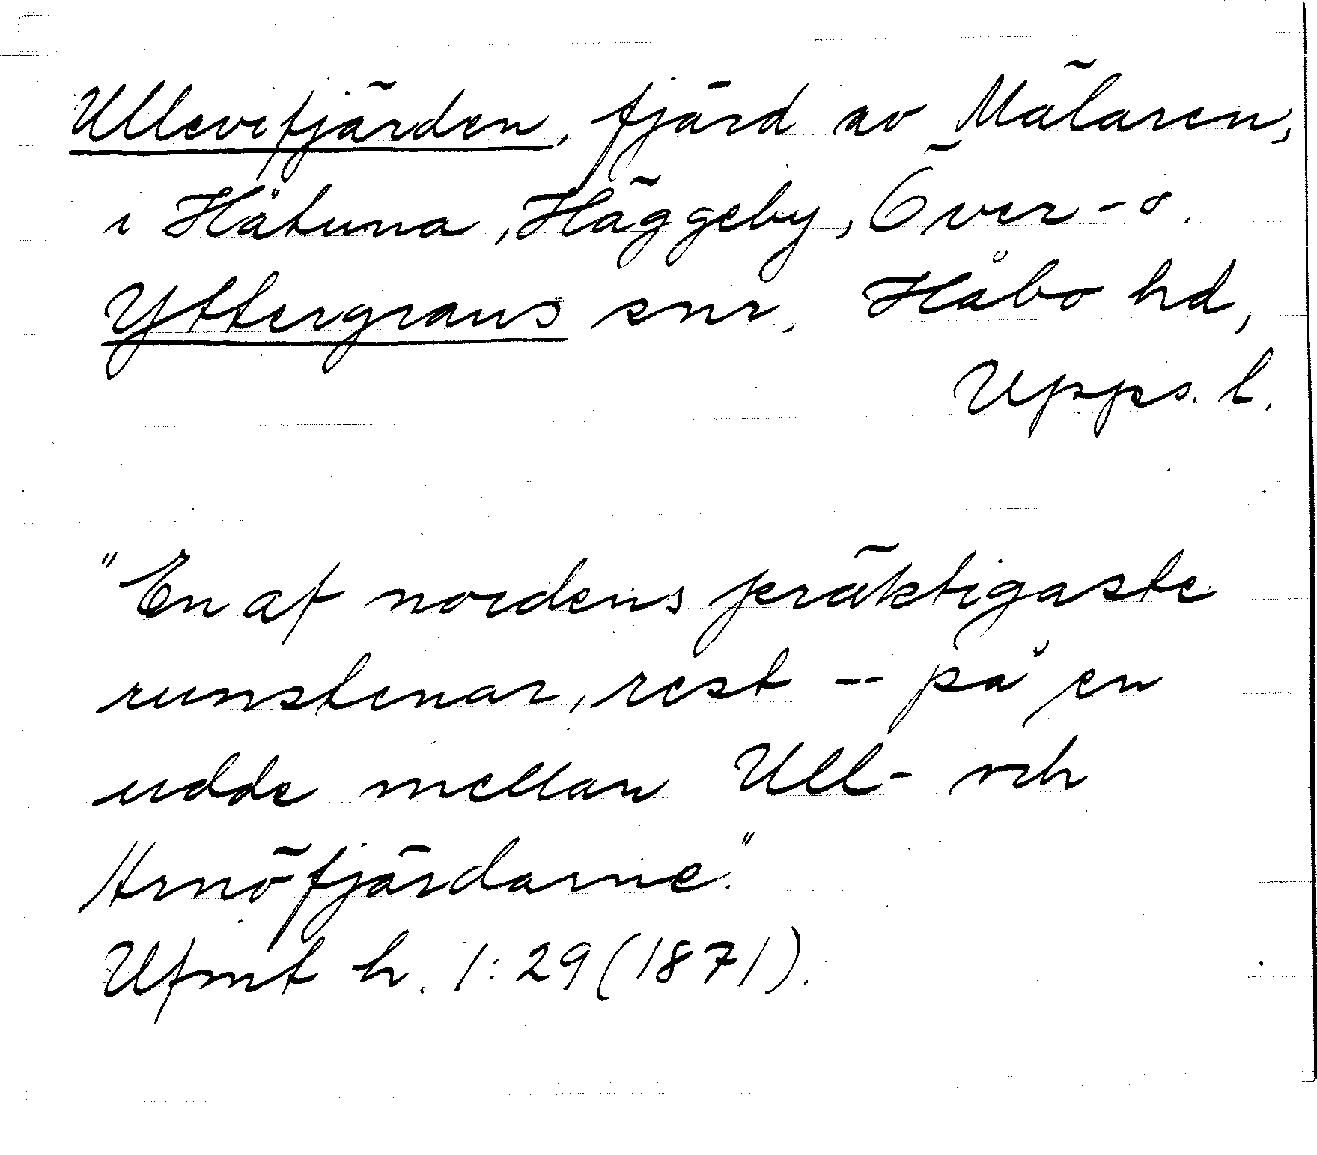 Ullevifjärden, fjärd av Mälaren,
i Håtuna, Häggeby, Över- o.
Yttergrans snr, Håbo hd,
Upps. l.
"En af nordens präktigaste
runstenar, rest -- på en
udde mellan Ull- och
Arnöfjärdarne."
Ufmt h. 1:29 (1871).